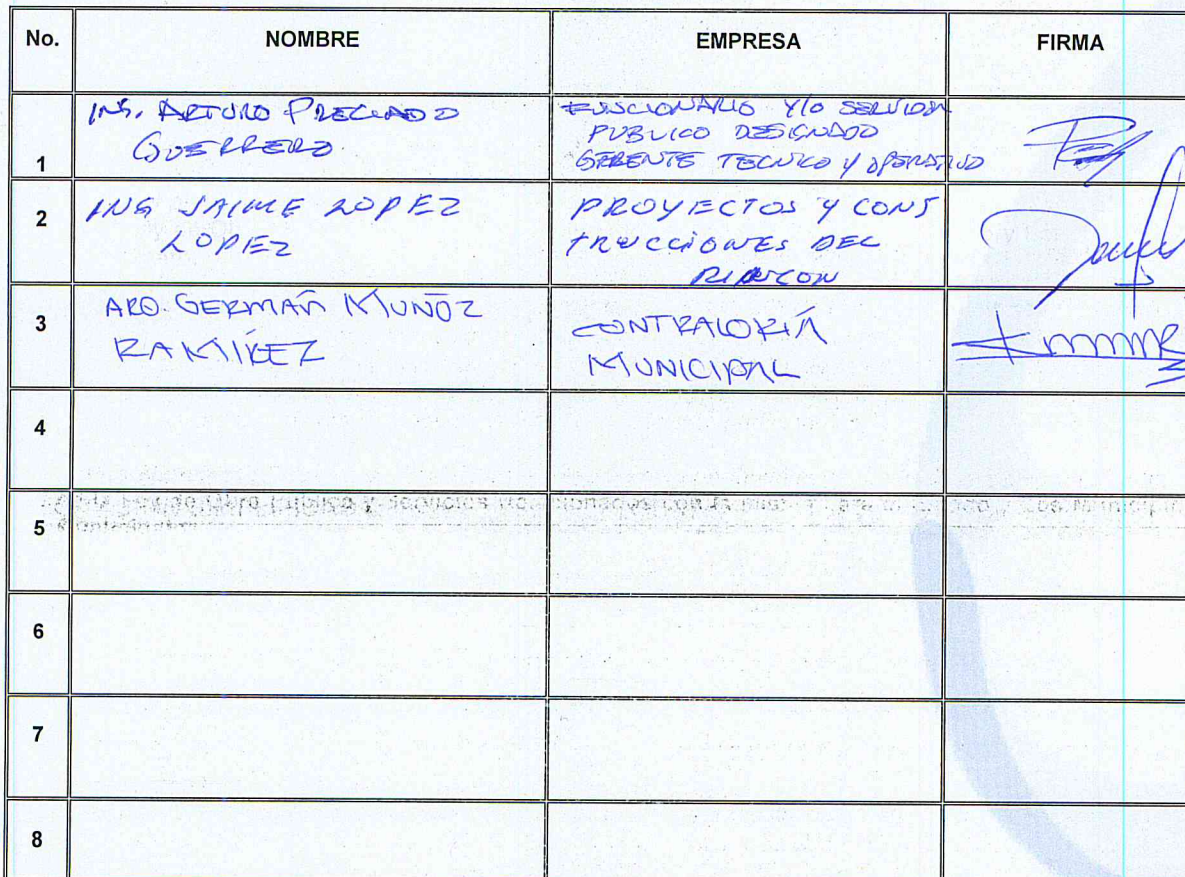 No. NOMBRE EMPRESA FIRMA
1
ING. ARTURO PRECIADO
GUERRERO
FUNCIONARIO Y/O SERVIDOR
PUBLICO DESIGNADO
GERENTE TECNICO Y OPERATIVO
2
ING JAIME LOPEZ
LOPEZ
PROYECTOS Y CONS
TRUCCIONES DEL
RINCON
3
ARQ. GERMAN MUÑOZ
RAMÍREZ
CONTRALORÍA
MUNICIPAL
4
5
6
7
8